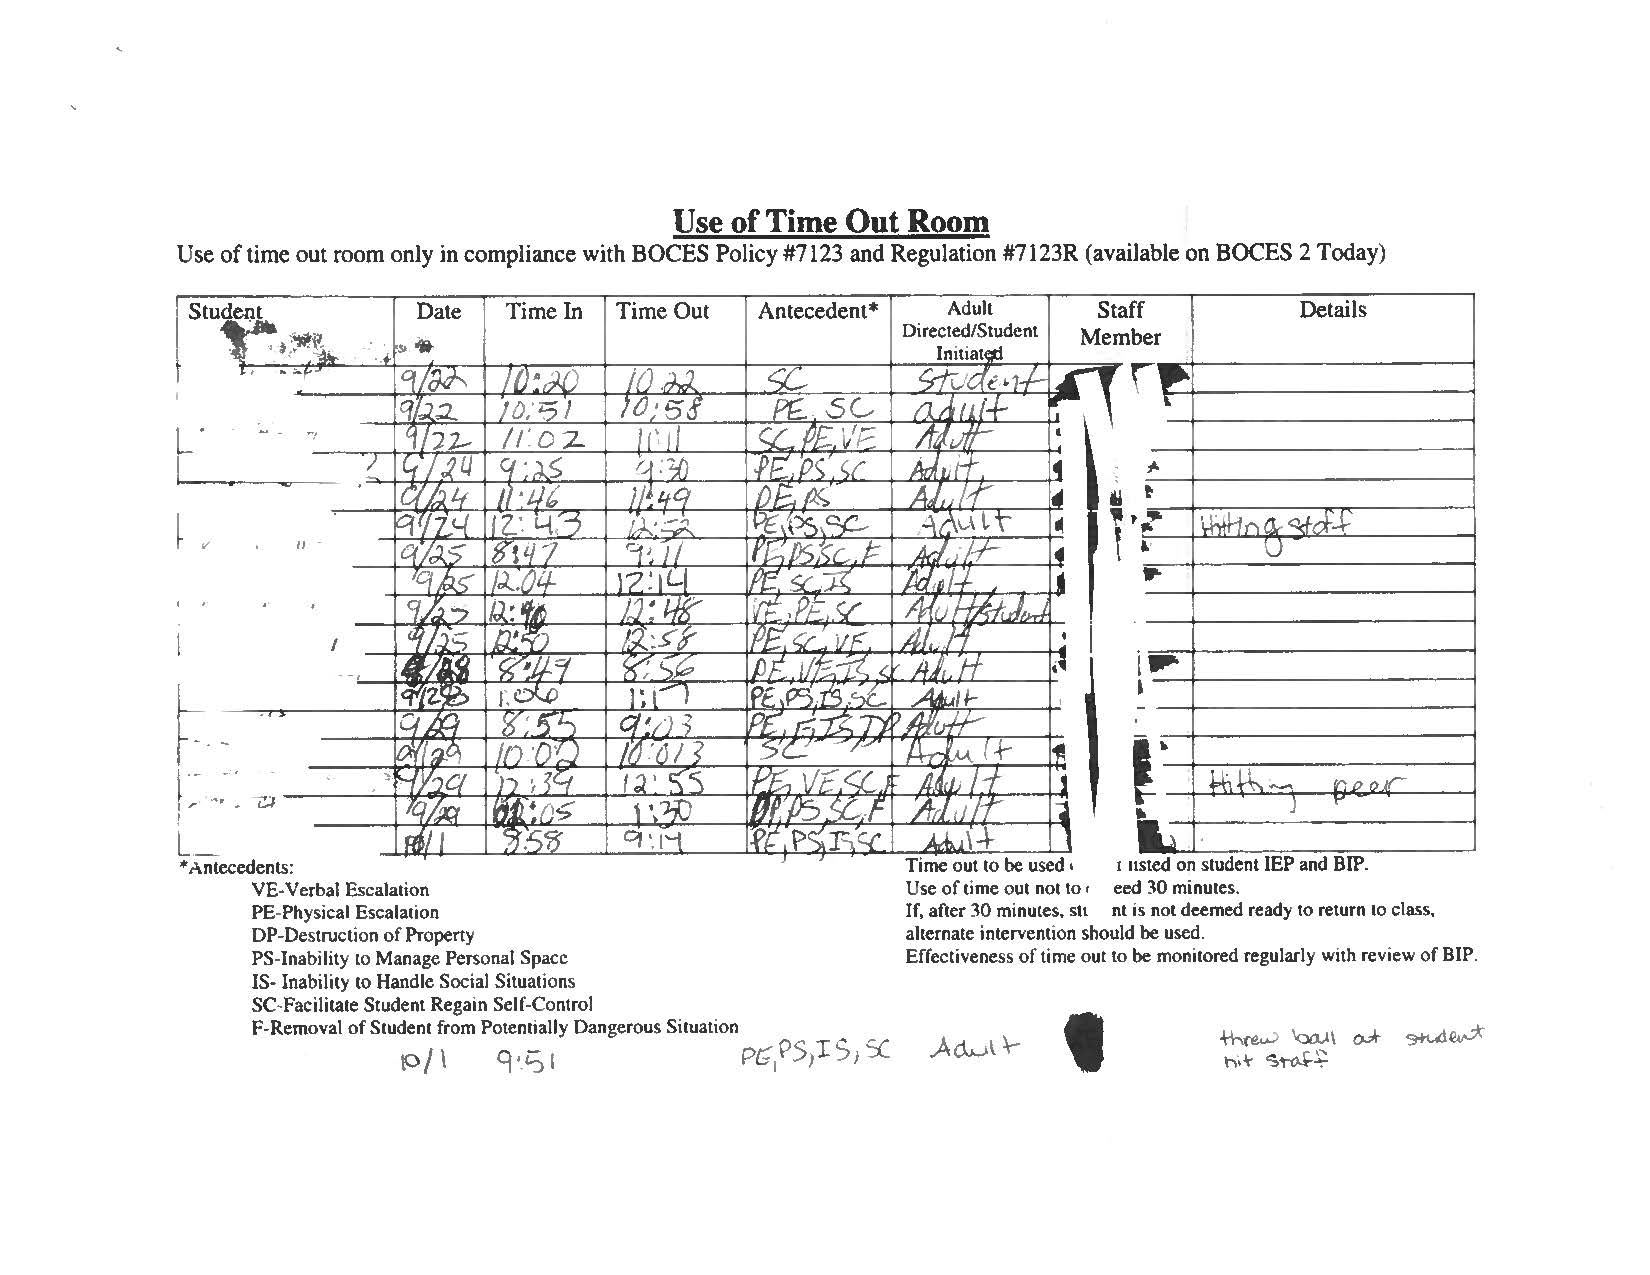 Use of Time Out Room
Use of time out room only in compliance with BOCES Policy #7123 and Regulation #7123R (available on BOCES 2 Today)
Student Date Time In Time Out Antecedent* Adult Directed/Student Initiated Staff Member Details
9/22 10:20 10:22 SC Student
9/22 10:51 10:58 PE, SC adult
9/22 11:02 11:11 SC, PE, VE Adult
9/24 9:25 9:30 PE, PS, SC Adult
9/24 11:46 11:49 PE, PS Adult
9/24 12:43 12:52 PE, PS, SC Adult Hitting staff
9/25 8:47 9:11 PE, PS, SC, F Adult
9/25 12:04 12:14 PE, SC, IS Adult
9/25 12:40 12:48 VE, PE, SC Adult/student
9/25 12:50 12:58 PE, SC, VE, Adult
9/28 8:49 8:56 PE, VE, IS, SC Adult
9/28 1:06 1:17 PE, PS, IS, SC Adult
9/29 8:55 9:03 PE, F, IS, DP Adult
9/29 10:00 10:013 SC Adult
9/29 12:39 12:55 PE, VE, SC, F Adult Hitting peer
9/29 :05 1:30 PS, SC, F Adult
10/1 8:58 9:14 PE, PS, IS, SC Adult
*Antecedents:
VE-Verbal Escalation
PE-Physical Escalation
DP-Destruction of Property
PS-Inability to Manage Personal Space
IS- Inability to Handle Social Situations
SC-Facilitate Student Regain Self-Control
F-Removal of Student from Potentially Dangerous Situation
Time out to be used on student IEP and BIP.
Use of time out not to eed 30 minutes.
If, after 30 minutes, nt is not deemed ready to return to class,
alternate intervention should be used.
Effectiveness of time out to be monitored regularly with review of BIP.
10/1 9:51 PE, PS, IS, SC Adult threw ball at student
hit staff